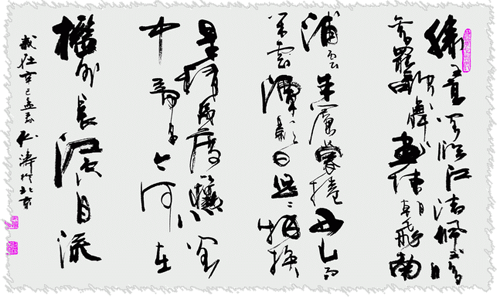 滕王高阁临江渚佩玉鸣
鸾罢歌舞画栋朝飞南
浦云朱帘暮捲西山雨
闲云潭影日悠悠物换
星移几度秋阁
中帝子今何在
槛外长江空自流
岁在辛巳 北京